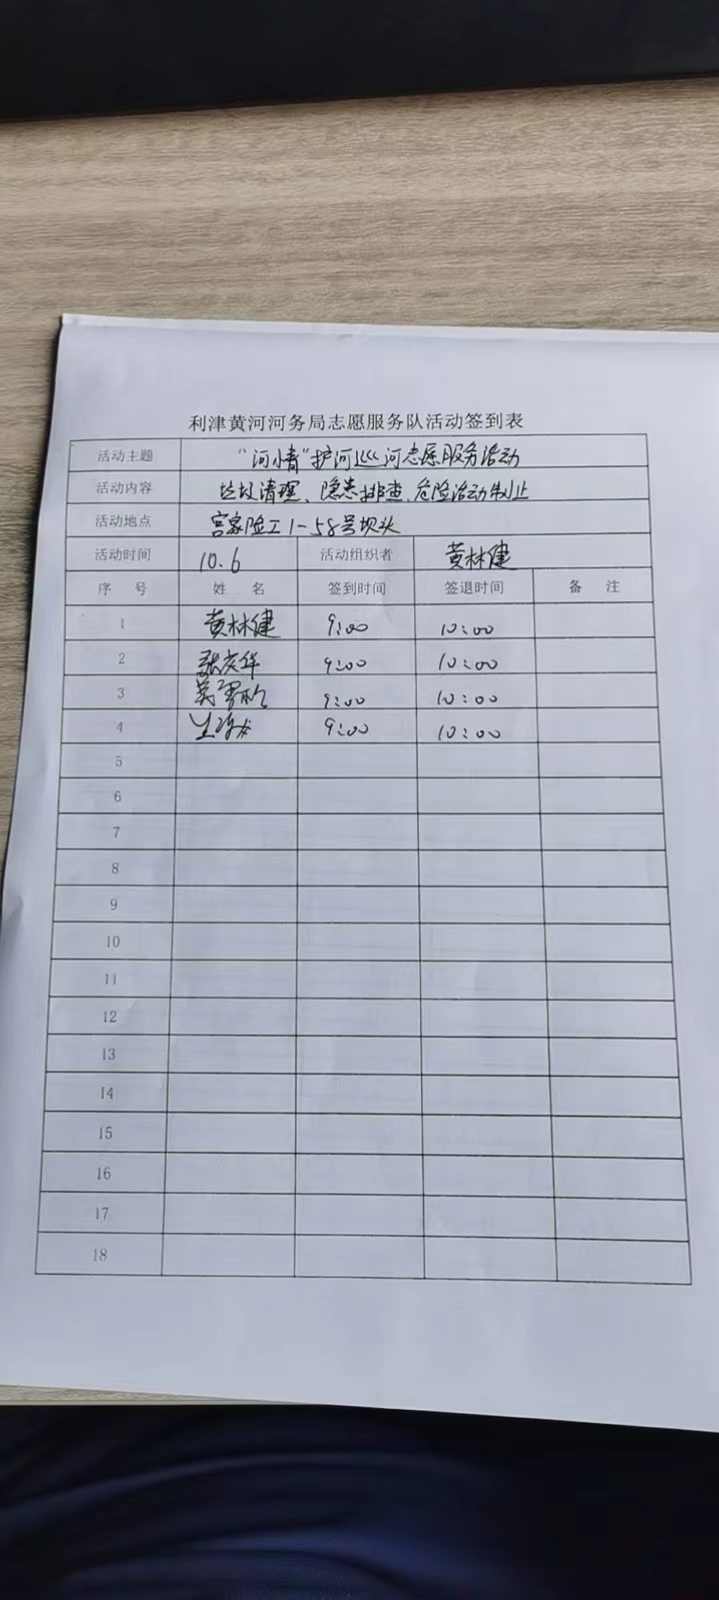 利津黄河河务局志愿服务队活动签到表
活动主题 "河小青"护河巡河志愿服务活动
活动内容 垃圾清理、隐患排查、危险活动制止
活动地点 宫家险工1-58号坝头
活动时间 10.6 活动组织者 黄林健
序 号 姓 名 签到时间 签退时间 备 注
1 黄林健 9:00 10:00
2 9:00 10:00
3 9:00 10:00
4 9:00 10:00
5
6
7
8
9
10
11
12
13
14
15
16
17
18